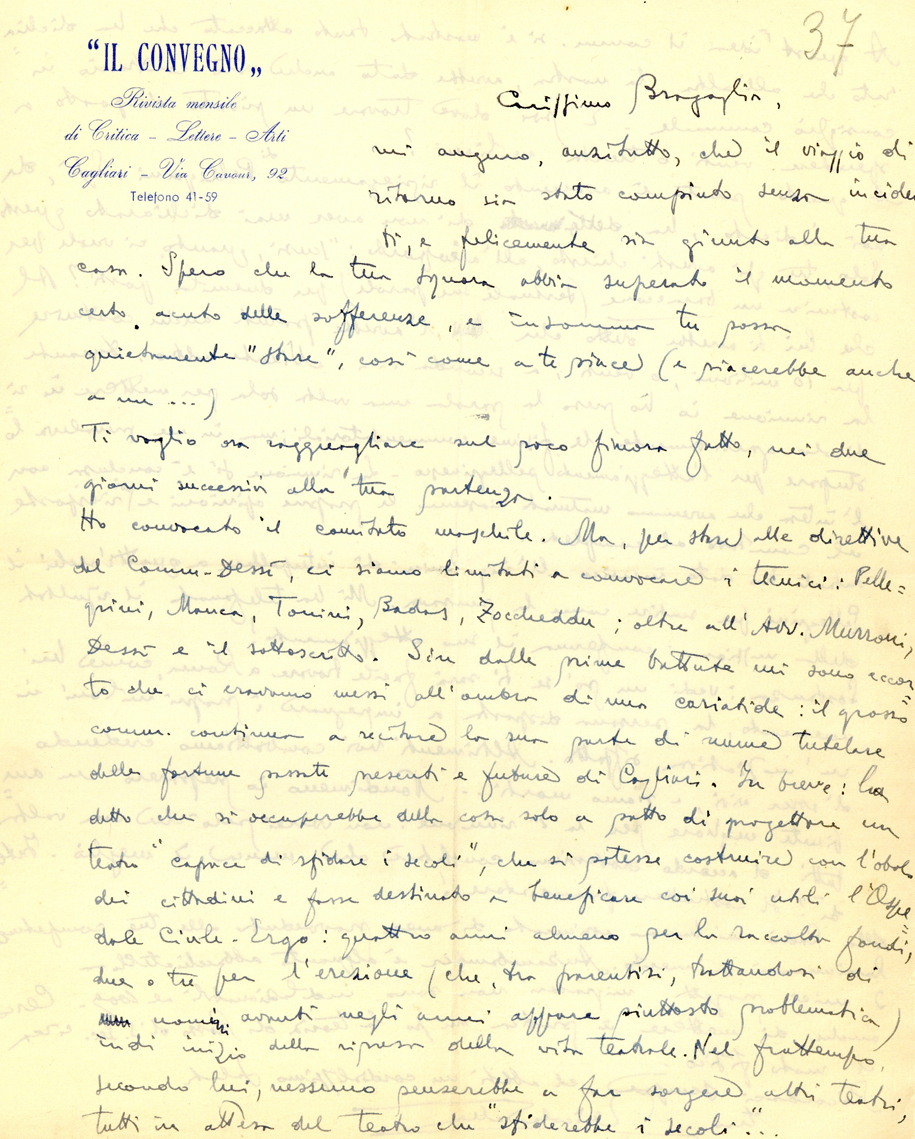 37
"IL CONVEGNO„
Rivista mensile
di Critica - Lettere - Arti
Cagliari - Via Cavour, 92
Telefono 41-59
Carissimo Bragaglia,
mi auguro, anzitutto, che il viaggio di
ritorno sia stato compiuto senza inciden
ti, e felicemente sia giunto alla tua
casa. Spero che la tua Signora abbia superato il momento
certo acuto delle sofferenze, e insomma tu possa
quietamente "stare", così come a te piace (e piacerebbe anche
a me ...)
Ti voglio ora ragguagliare sul poco finora fatto, nei due
giorni successivi alla tua partenza.
Ho convocato il comitato maschile. Ma, per stare alle direttive
del Comm. Dessì, ci siamo limitati a convocare i tecnici: Pelle=
grini, Manca, Tonini, Badas, Zoccheddu; oltre all'Avv. Murroni,
Dessì e il sottoscritto. Sin dalle prime battute mi sono accor=
to che ci eravamo messi all'ombra di una cariatide: il grosso
comm. continua a recitare la sua parte di nume tutelare
delle fortune passate presenti e future di Cagliari. In breve: ha
detto che si occuperebbe della cosa solo a patto di progettare un
teatro "capace di sfidare i secoli", che si potesse costruire con l'obolo
dei cittadini e fosse destinato a beneficare coi suoi utili l'Ospe=
dale Civile. Ergo: quattro anni almeno per la raccolta fondi,
due o tre per l'erezione (che, tra parentisi, trattandosi di
uomini avanti negli anni appare piuttosto problematica)
indi inizio della ripresa della vita teatrale. Nel frattempo,
secondo lui, nessuno penserebbe a far sorgere altri teatri,
tutti in attesa del teatro che "sfiderebbe i secoli"..